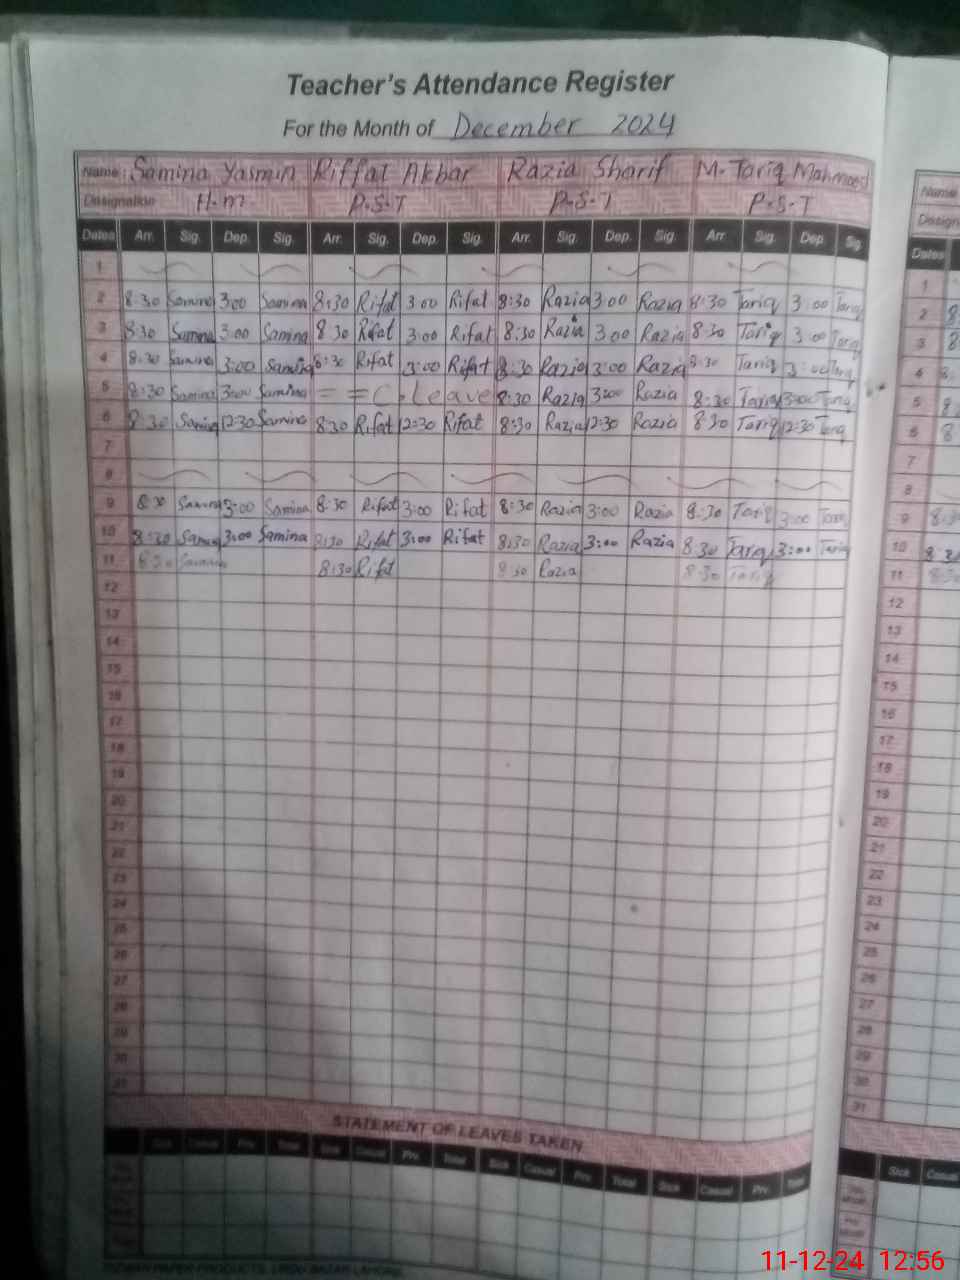 Teacher's Attendance Register
For the Month of December 2024
Name : Samina Yasmin Riffat Akbar Razia Sharif M. Tariq Mahmood Name
Designation H.m P.S.T P.S.T P.S.T
Dates Arr. Sig. Dep. Sig. Arr. Sig. Dep. Sig. Arr. Sig. Dep. Sig. Arr. Sig. Dep. Sig. Dates
1 1
2 8:30 Samina 3:00 Samina 8:30 Rifat 3:00 Rifat 8:30 Razia 3:00 Razia 8:30 Tariq 3:00 Tariq 2
3 8:30 Samina 3:00 Samina 8:30 Rifat 3:00 Rifat 8:30 Razia 3:00 Razia 8:30 Tariq 3:00 Tariq 3
4 8:30 Samina 3:00 Samina 8:30 Rifat 3:00 Rifat 8:30 Razia 3:00 Razia 8:30 Tariq 3:00 Tariq 4
5 8:30 Samina 3:00 Samina = = C. Leave 8:30 Razia 3:00 Razia 8:30 Tariq 3:00 Tariq 5
6 8:30 Samina 12:30 Samina 8:30 Rifat 12:30 Rifat 8:30 Razia 12:30 Razia 8:30 Tariq 12:30 Tariq 6
7 7
8 8
9 8:30 Samina 3:00 Samina 8:30 Rifat 3:00 Rifat 8:30 Razia 3:00 Razia 8:30 Tariq 3:00 Tariq 9
10 8:30 Samina 3:00 Samina 8:30 Rifat 3:00 Rifat 8:30 Razia 3:00 Razia 8:30 Tariq 3:00 Tariq 10
11 8:30 Samina 8:30 Rifat 8:30 Razia 8:30 Tariq 11
12 12
13 13
14 14
15 15
16 16
17 17
18 18
19 19
20 20
21 21
22 22
23 23
24 24
25 25
26 26
27 27
28 28
29 29
30 30
31 31
STATEMENT OF LEAVES TAKEN
Sick Casual Prv. Total Sick Casual Prv. Total Sick Casual Prv. Total Sick Casual Prv. Total Sick Casual
11-12-24 12:56